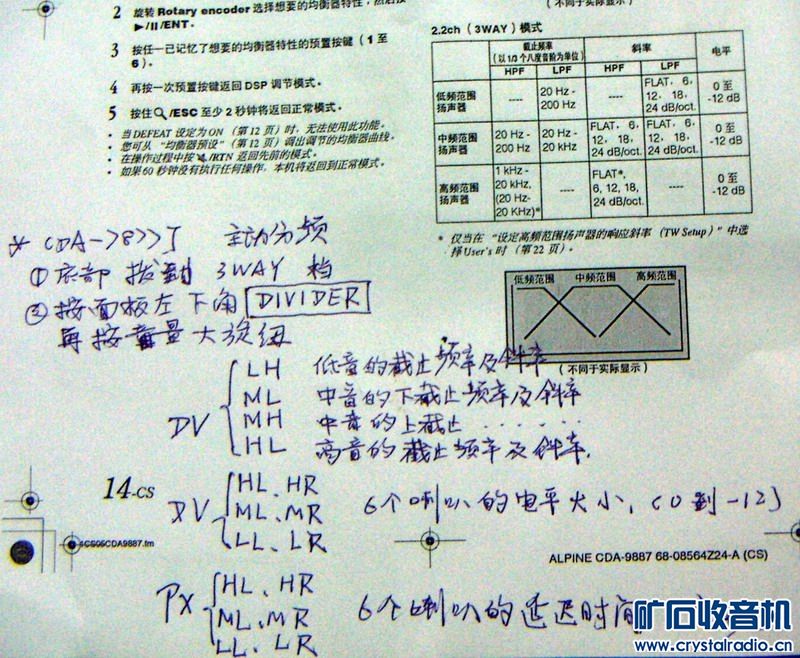 2 旋转 Rotary encoder 选择想要的均衡器特性，然后按
▶/II/ENT.
3 按任一已记忆了想要的均衡器特性的预置按键（1 至
6）。
4 再按一次预置按键返回 DSP 调节模式。
5 按住 /ESC 至少 2 秒钟将返回正常模式。
• 当 DEFEAT 设定为 ON（第 12 页）时，无法使用此功能。
• 您可从“均衡器预设”（第 12 页）调出调节的均衡器曲线。
• 在操作过程中按 /RTN 返回先前的模式。
• 如果 60 秒钟没有执行任何操作，本机将返回到正常模式。
（不同于实际显示）
2.2ch（3WAY）模式
截止频率 斜率 电平
（以 1/3 个八度音阶为单位）
HPF LPF HPF LPF
低频范围扬声器 ---- 20 Hz - 200 Hz ---- FLAT，6，12，18，24 dB/oct. 0 至 -12 dB
中频范围扬声器 20 Hz - 200 Hz 20 Hz - 20 kHz FLAT，6，12，18，24 dB/oct. FLAT，6，12，18，24 dB/oct. 0 至 -12 dB
高频范围扬声器 1 kHz - 20 kHz, (20 Hz- 20 KHz)* ---- FLAT*, 6, 12, 18, 24 dB/oct. ---- 0 至 -12 dB
* 仅当在“设定高频范围扬声器的响应斜率（TW Setup）”中选
择 User's 时（第 22 页）。
低频范围 中频范围 高频范围
（不同于实际显示）
* CDA- 主动分频
① 底部 拨到 3WAY 档
② 按面板左下角 DIVIDER
再按音量大旋钮
DV
LH 低音的截止频率及斜率
ML 中音的下截止频率及斜率
MH 中音的上截止 ......
HL 高音的截止频率及斜率.
14-CS
DV
HL、HR
ML、MR 6个喇叭的电平大小，(0到-12)
LL、LR
4CS05CDA9887.fm
ALPINE CDA-9887 68-08564Z24-A (CS)
PX
HL、HR
ML、MR 6个喇叭的延迟时间
LL、LR
矿石收音机
www.crystalradio.cn